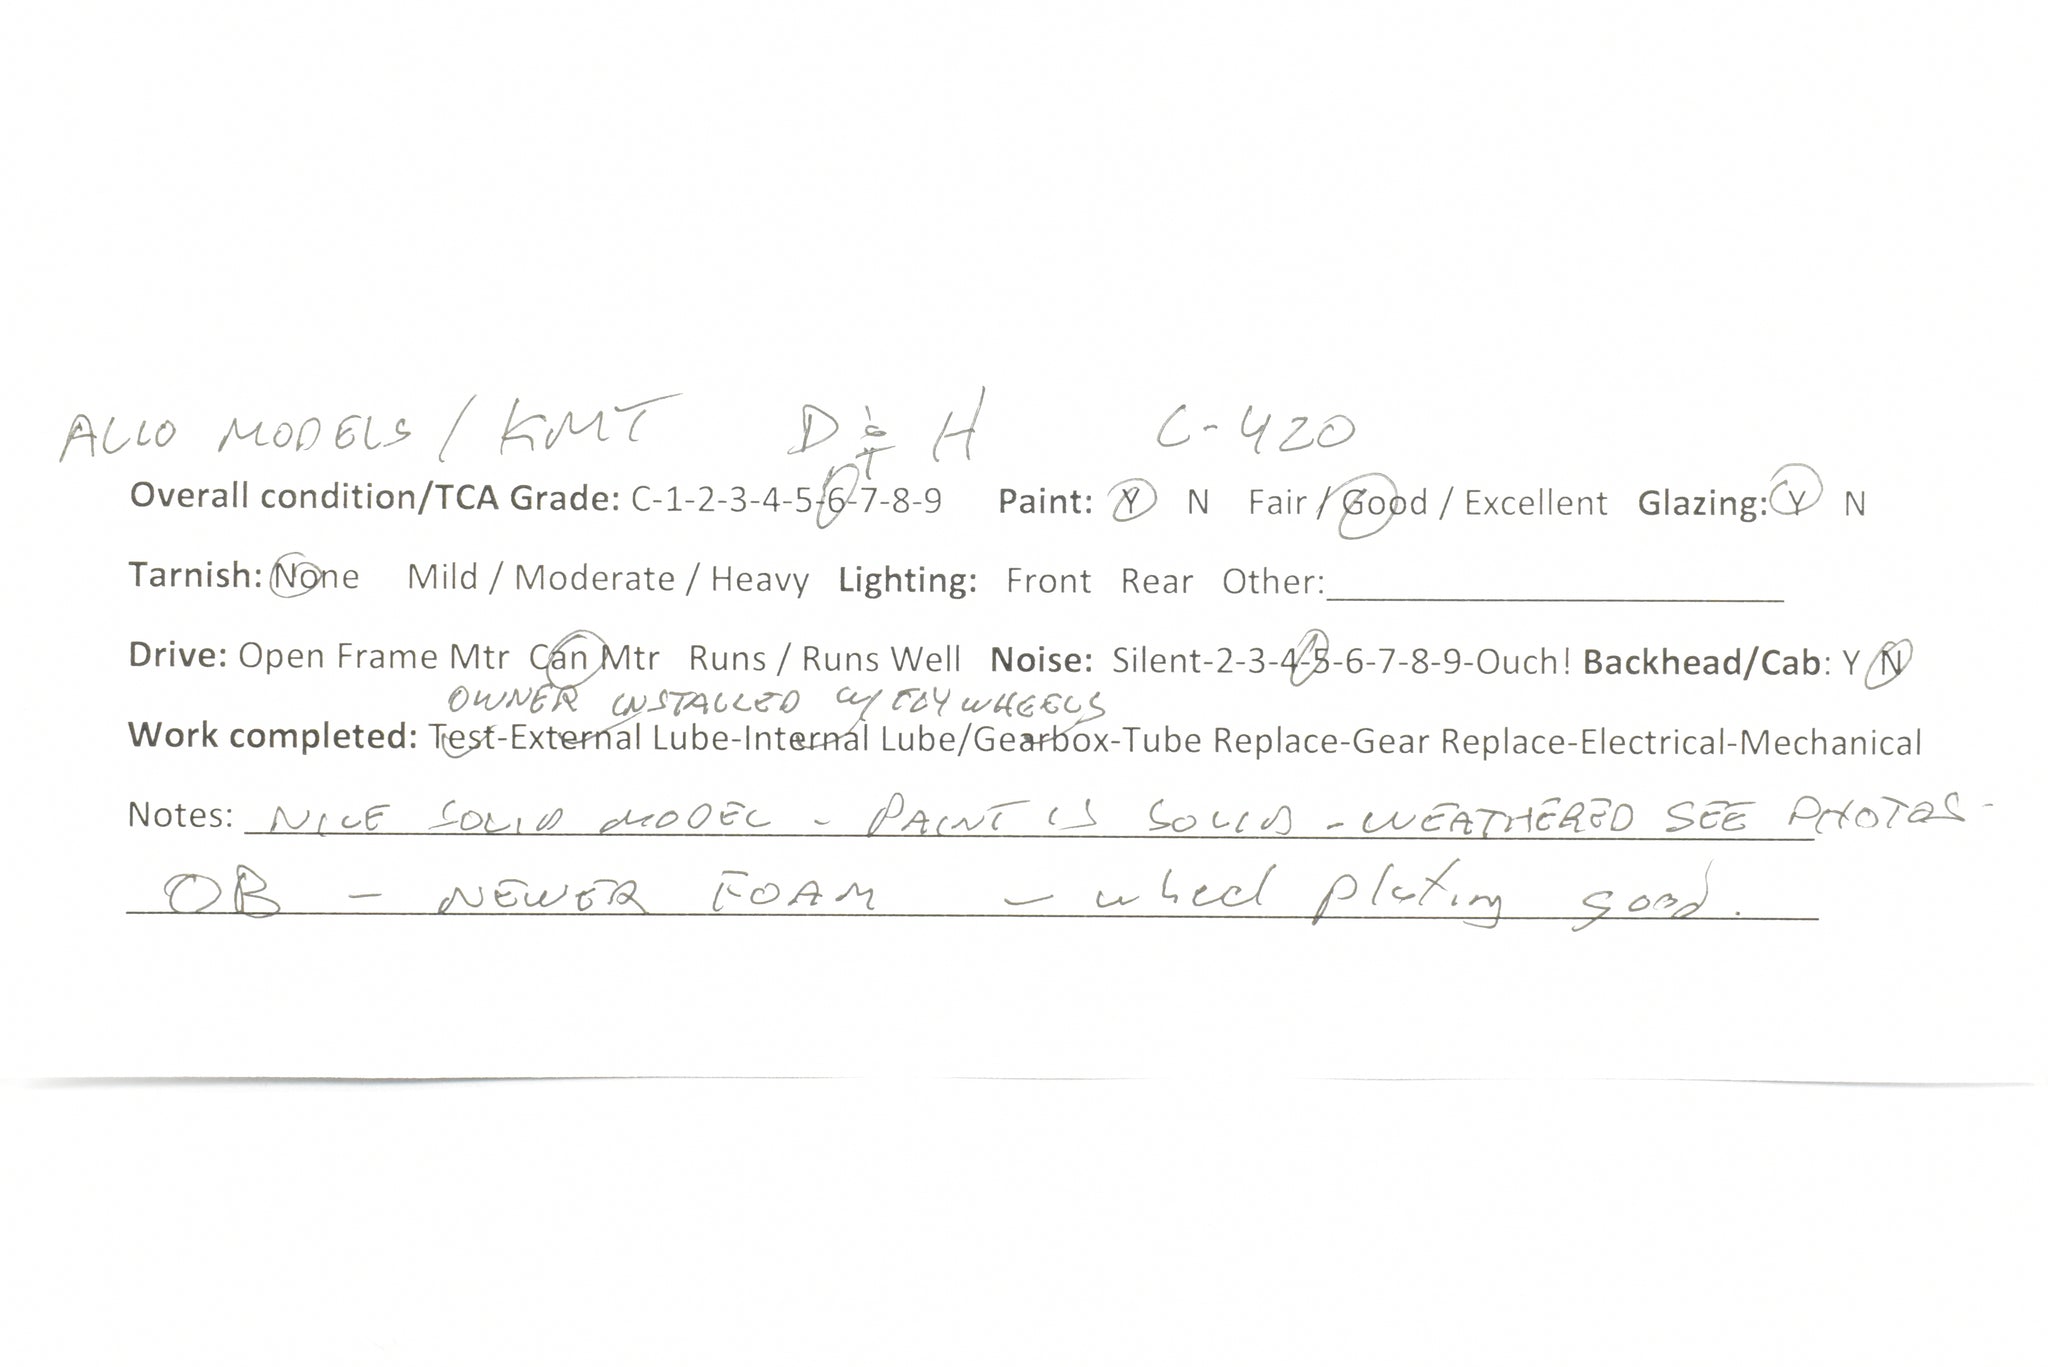 ALCO MODELS / KMT D & H C-420
Overall condition/TCA Grade: C-1-2-3-4-5-6-7-8-9 Paint: Y N Fair / Good / Excellent Glazing: Y N
Tarnish: None Mild / Moderate / Heavy Lighting: Front Rear Other:
Drive: Open Frame Mtr Can Mtr Runs / Runs Well Noise: Silent-2-3-4-5-6-7-8-9-Ouch! Backhead/Cab: Y N
OWNER INSTALLED w/ FLYWHEELS
Work completed: Test-External Lube-Internal Lube/Gearbox-Tube Replace-Gear Replace-Electrical-Mechanical
Notes: NICE SOLID MODEL - PAINT IS SOLID - WEATHERED SEE PHOTOS -
OB - NEWER FOAM - wheel plating good.